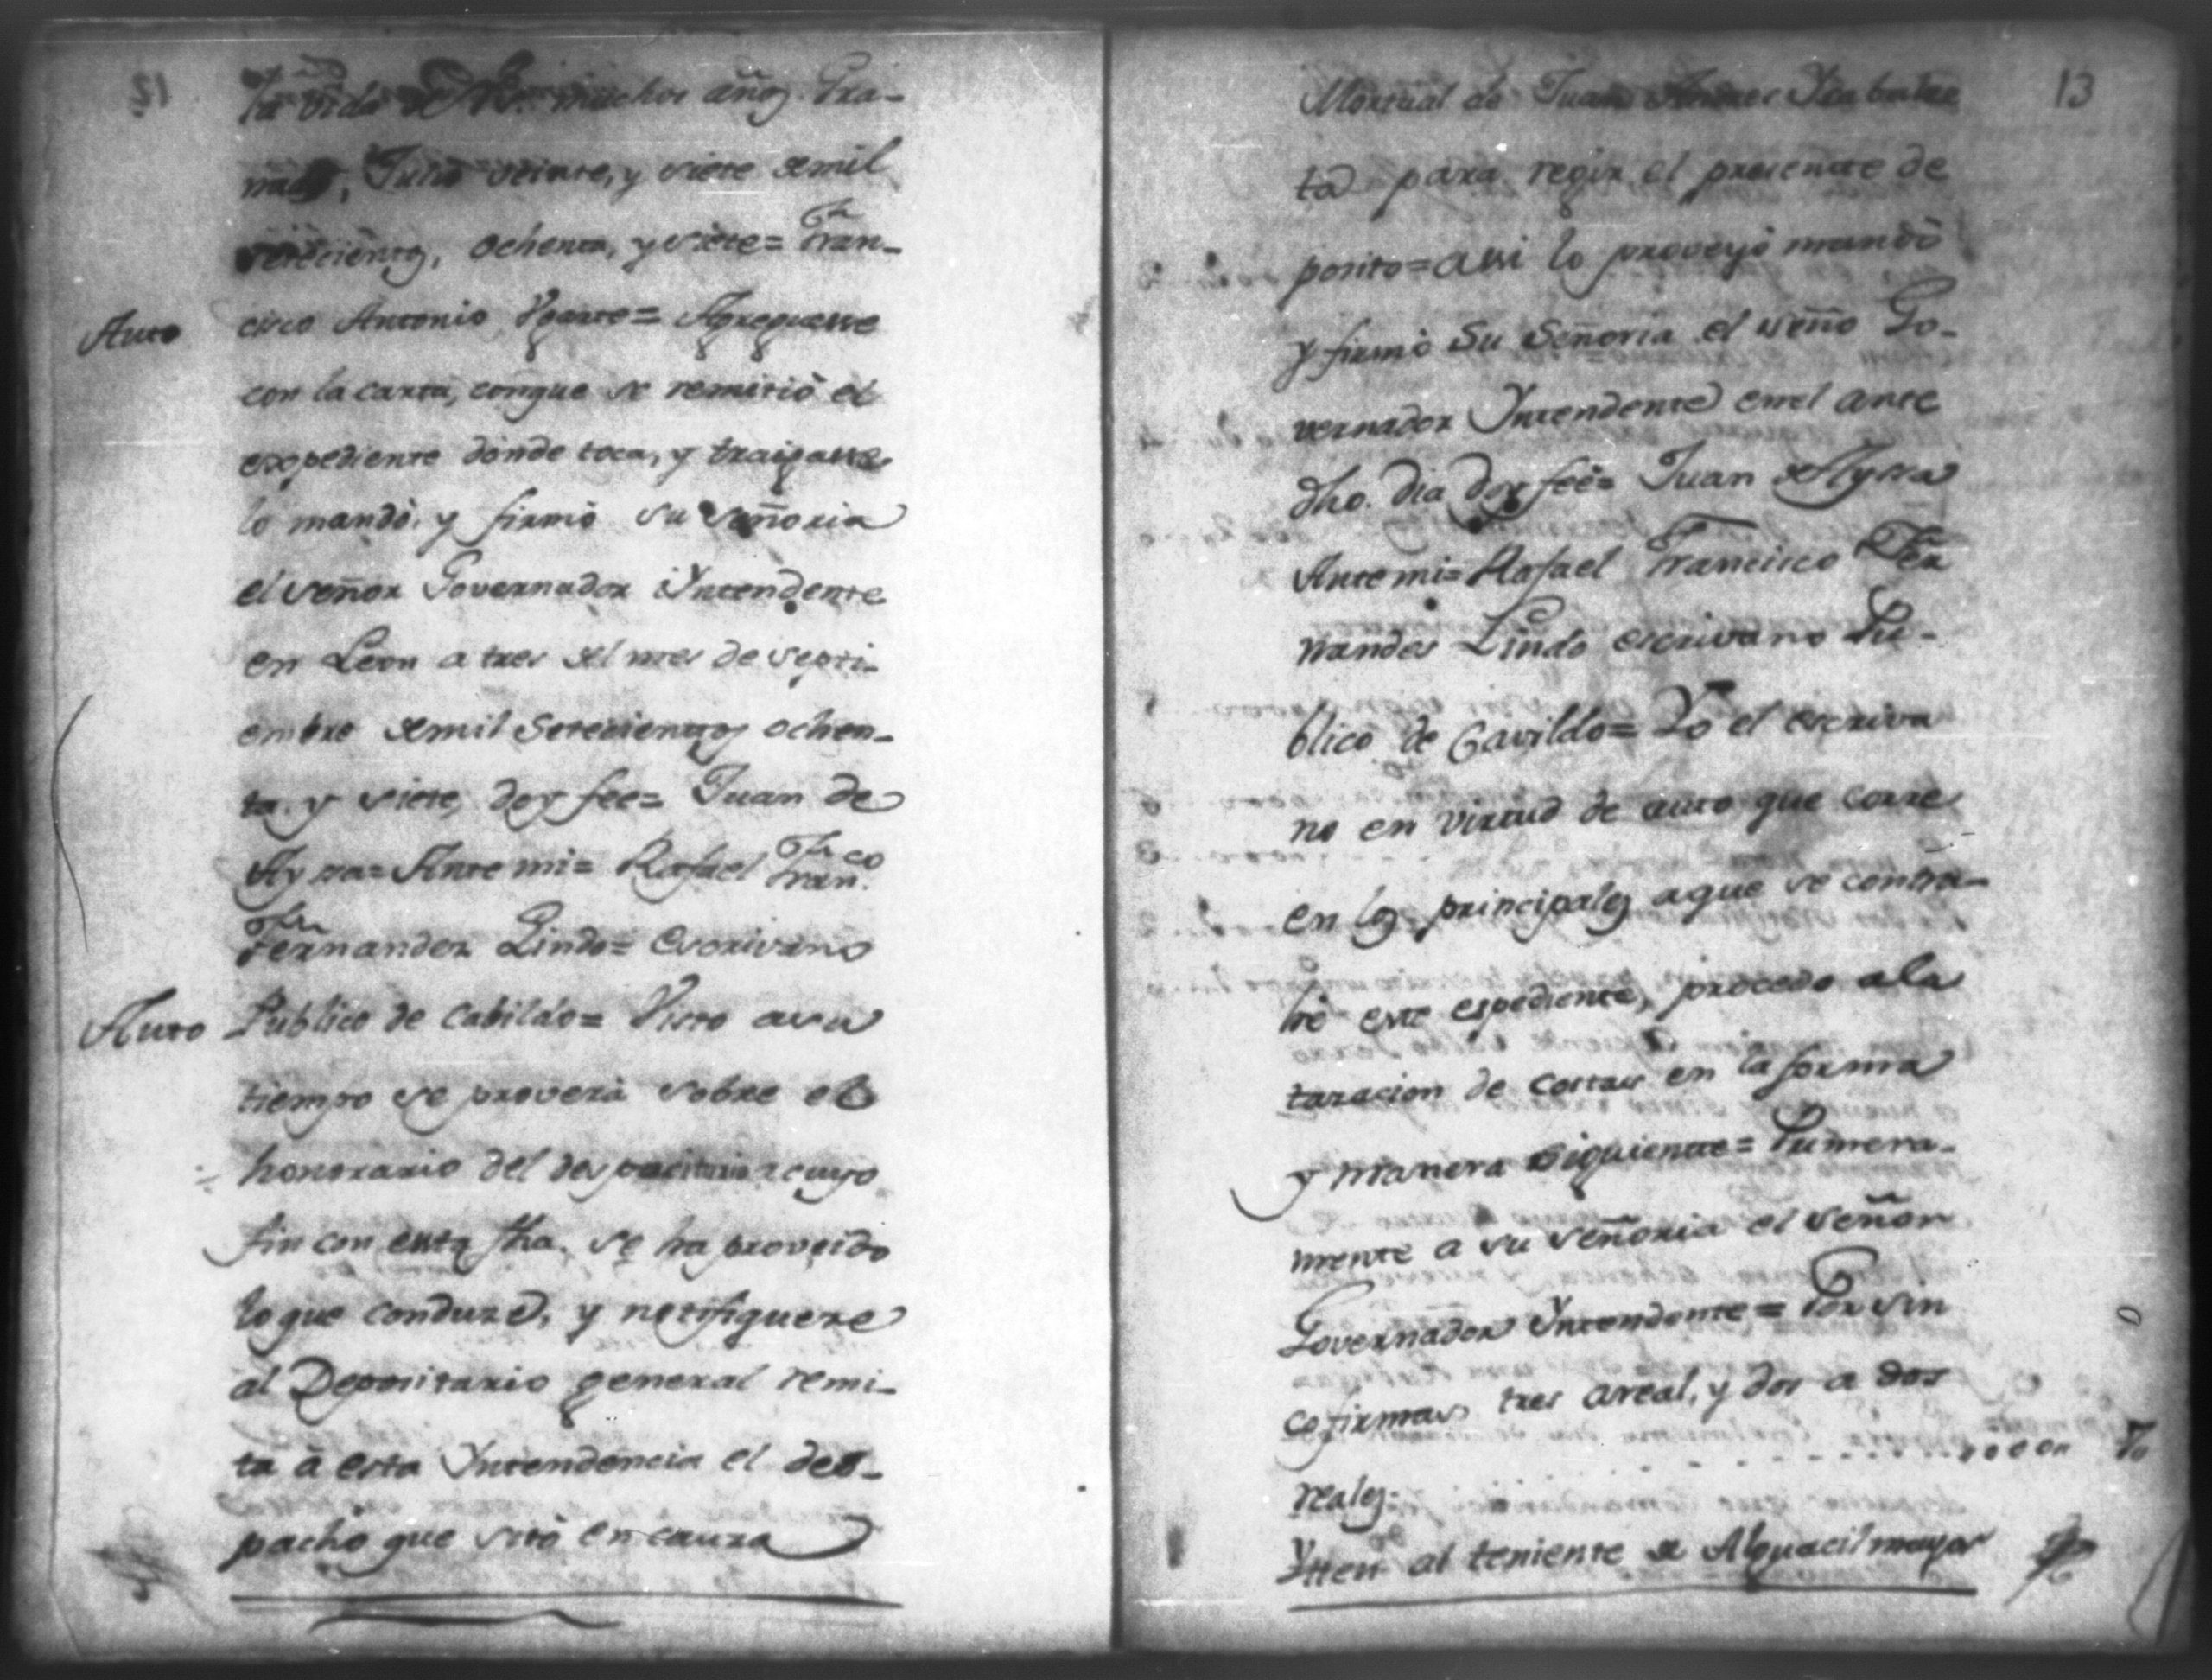 la vida de V.S. muchos años. Gra-
nada, Julio veinte, y siete de mil
setecientos, ochenta, y siete = Fran-
Auto cisco Antonio Ugarte = Agreguesse
con la carta, conque se remitió el
expediente donde toca, y traigasse
lo mandó, y firmó su señoria
el señor Governador Yntendente
en Leon a tres del mes de septi-
embre de mil setecientos ochen-
ta y siete, doy fee = Juan de
Ayssa = Ante mi = Rafael Fran.co
Fernandez Lindo = Escrivano
Auto Publico de Cabildo = Visto a su
tiempo se proverá sobre el
honorario del cuyo
fin con esta fha. se ha proveido
lo que conduze, y notifiquese
al Depositario general remi-
ta à esta Yntendencia el des-
pacho que sitó en cauza
13
Mortual de Juan
ta para regir el presente de
posito = assi lo proveyó mandó
y firmó Su Señoria el seño Go-
vernador Yntendente en el ante
dho. dia doy fee = Juan de Ayssa
Ante mi = Rafael Francisco Fer
nandes Lindo escrivano Pu-
blico de Cavildo = Yo el escriva
no en virtud de auto que corre
en los principales aque se contra-
he este espediente, procedo a la
tazacion de costas en la forma
y manera siguiente = Primera-
mente a su señoria el señor
Governador Yntendente = Por sin
co firmas tres a real, y dos a dos
reales
Ytten al teniente de Alguacil mayor